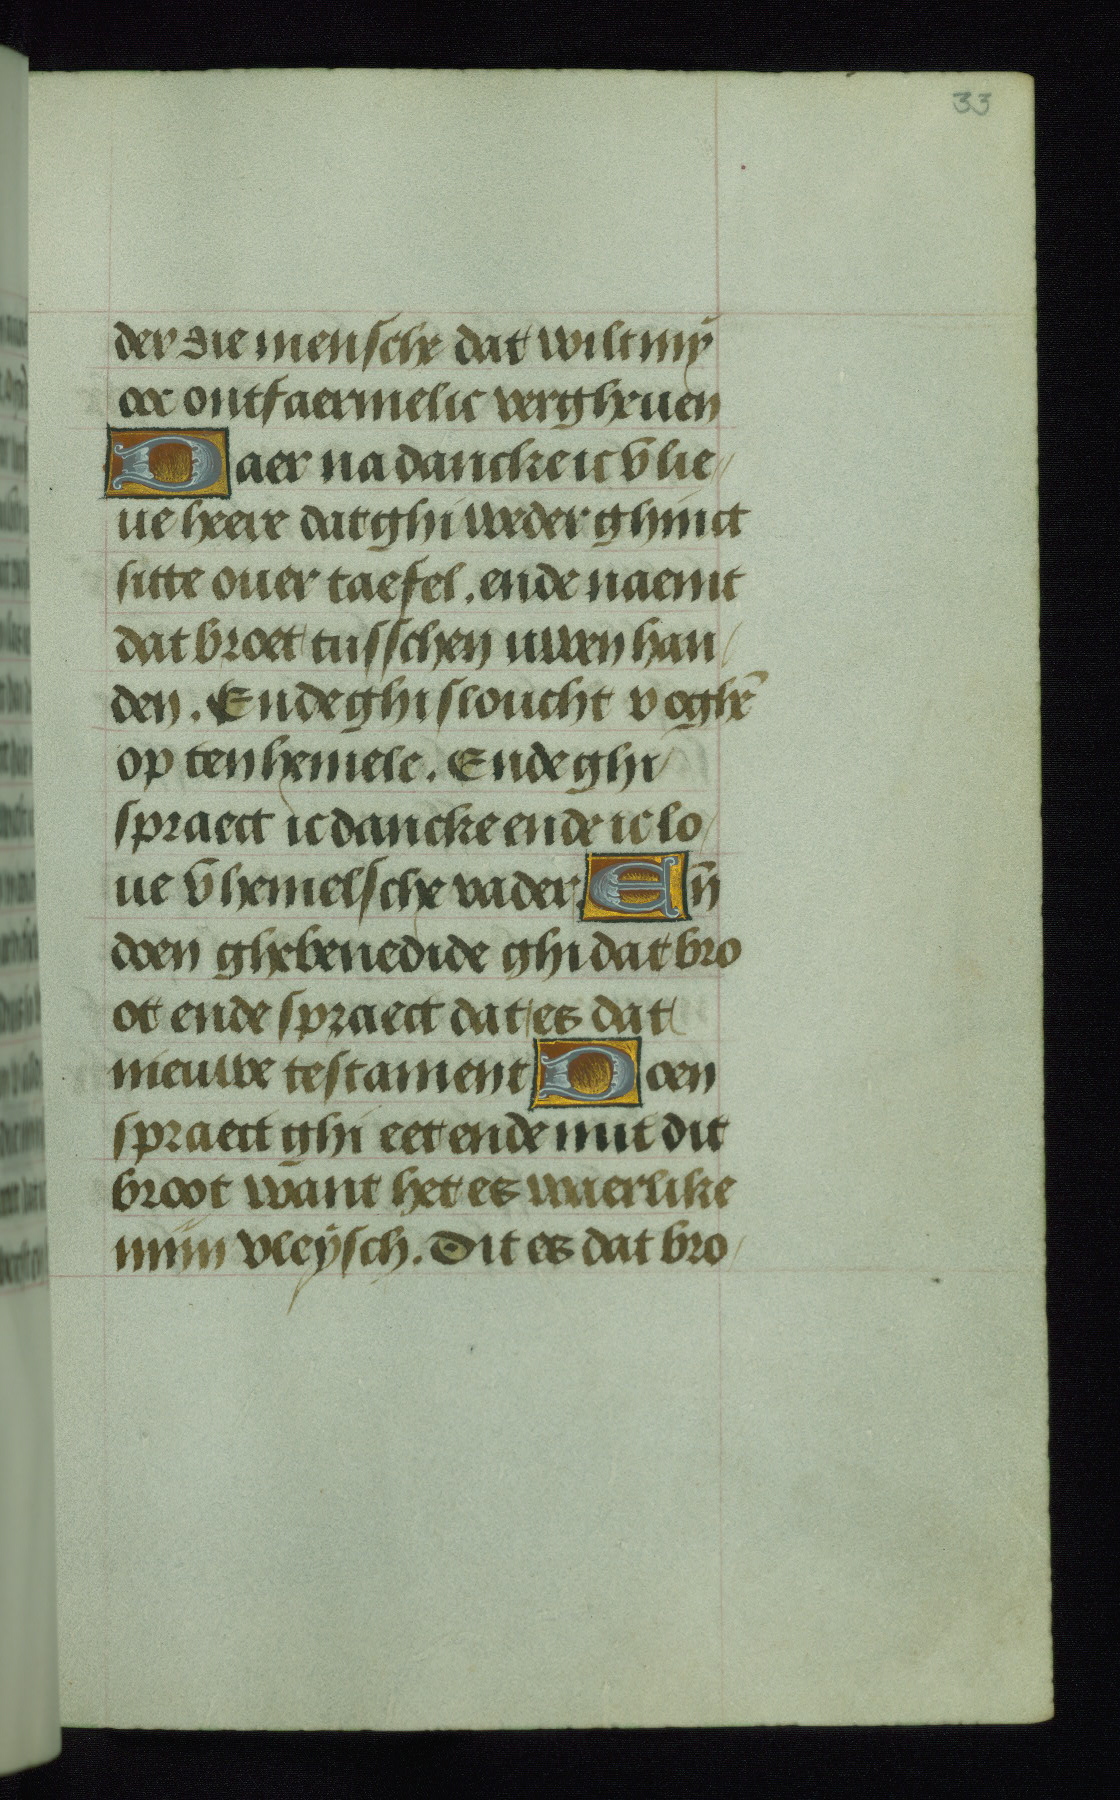 33
der die mensche dat wilt my
oec ontfaermelic vergheuen
Daer na dancke ic v̄ lie/
ue heere dat ghi weder ghinct
sitte ouer taefel. ende naemt
dat broet tusschen uwen han/
den. Ende ghi sloucht v oghē
op ten hemele. Ende ghi/
spraect ic dancke ende ic lo/
ue v̄ hemelsche vader. En̄
doen ghebenedide ghi dat bro
ot ende spraect dat es dat
nieuwe testament Doen
spraect ghi eet ende nut dit
broot want het es waerlike
mijn vleÿsch. Dit es dat bro/